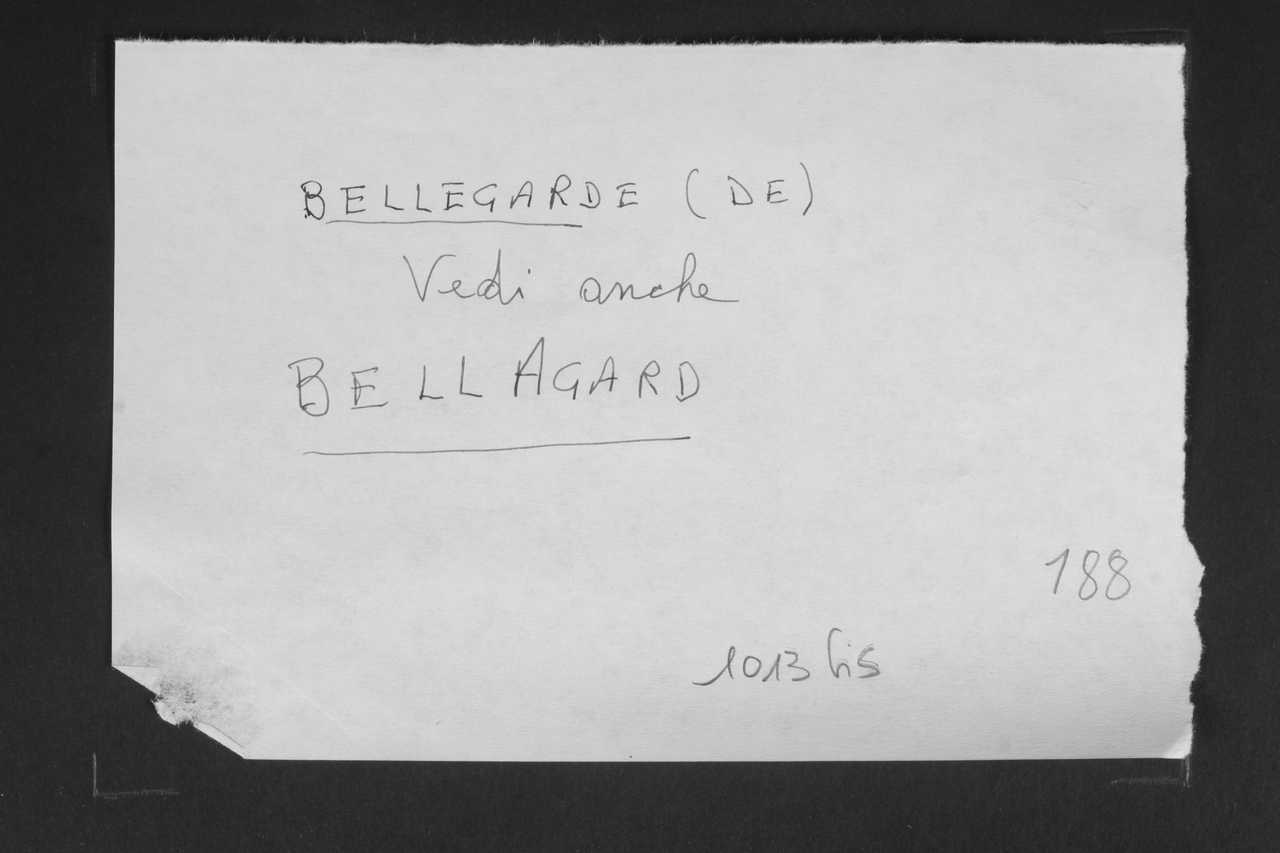 BELLEGARDE (DE)
Vedi anche
BELLAGARD
188
1013 bis